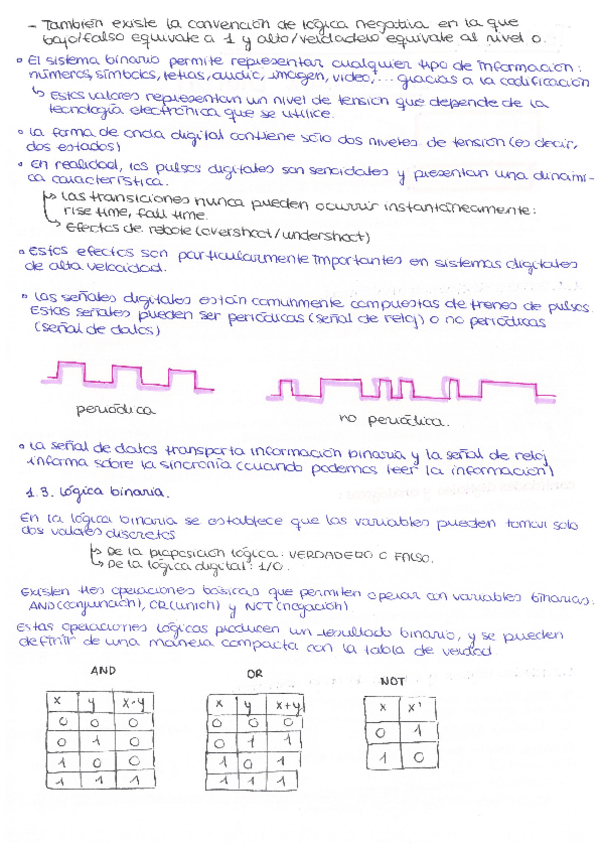 - También existe la convención de lógica negativa en la que
bajo/falso equivale a 1 y alto/verdadero equivale al nivel 0.
• El sistema binario permite representar cualquier tipo de información:
números, símbolos, letras, audio, imagen, video,... gracias a la codificación
↳ Estos valores representan un nivel de tensión que depende de la
tecnología electrónica que se utilice.
• La forma de onda digital contiene sólo dos niveles de tensión (es decir,
dos estados)
• En realidad, los pulsos digitales son senoidales y presentan una dinámi-
ca característica.
↳ Las transiciones nunca pueden ocurrir instantáneamente:
rise time, fall time.
↳ Efectos de rebote (overshoot/undershoot)
• Estos efectos son particularmente importantes en sistemas digitales
de alta velocidad.
• Las señales digitales están comúnmente compuestas de trenes de pulsos.
Estas señales pueden ser periódicas (señal de reloj) o no periódicas
(señal de datos)
periódica
no periódica.
• La señal de datos transporta información binaria y la señal de reloj
informa sobre la sincronía (cuando podemos leer la información)
1.3. Lógica binaria.
En la lógica binaria se establece que las variables pueden tomar solo
dos valores discretos
↳ De la proposición lógica: VERDADERO O FALSO.
↳ De la lógica digital: 1/0.
Existen tres operaciones básicas que permiten operar con variables binarias:
AND (conjunción), OR (unión) y NOT (negación)
Estas operaciones lógicas producen un resultado binario, y se pueden
definir de una manera compacta con la tabla de verdad
AND
x y x·y
0 0 0
0 1 0
1 0 0
1 1 1
OR
x y x+y
0 0 0
0 1 1
1 0 1
1 1 1
NOT
x x'
0 1
1 0